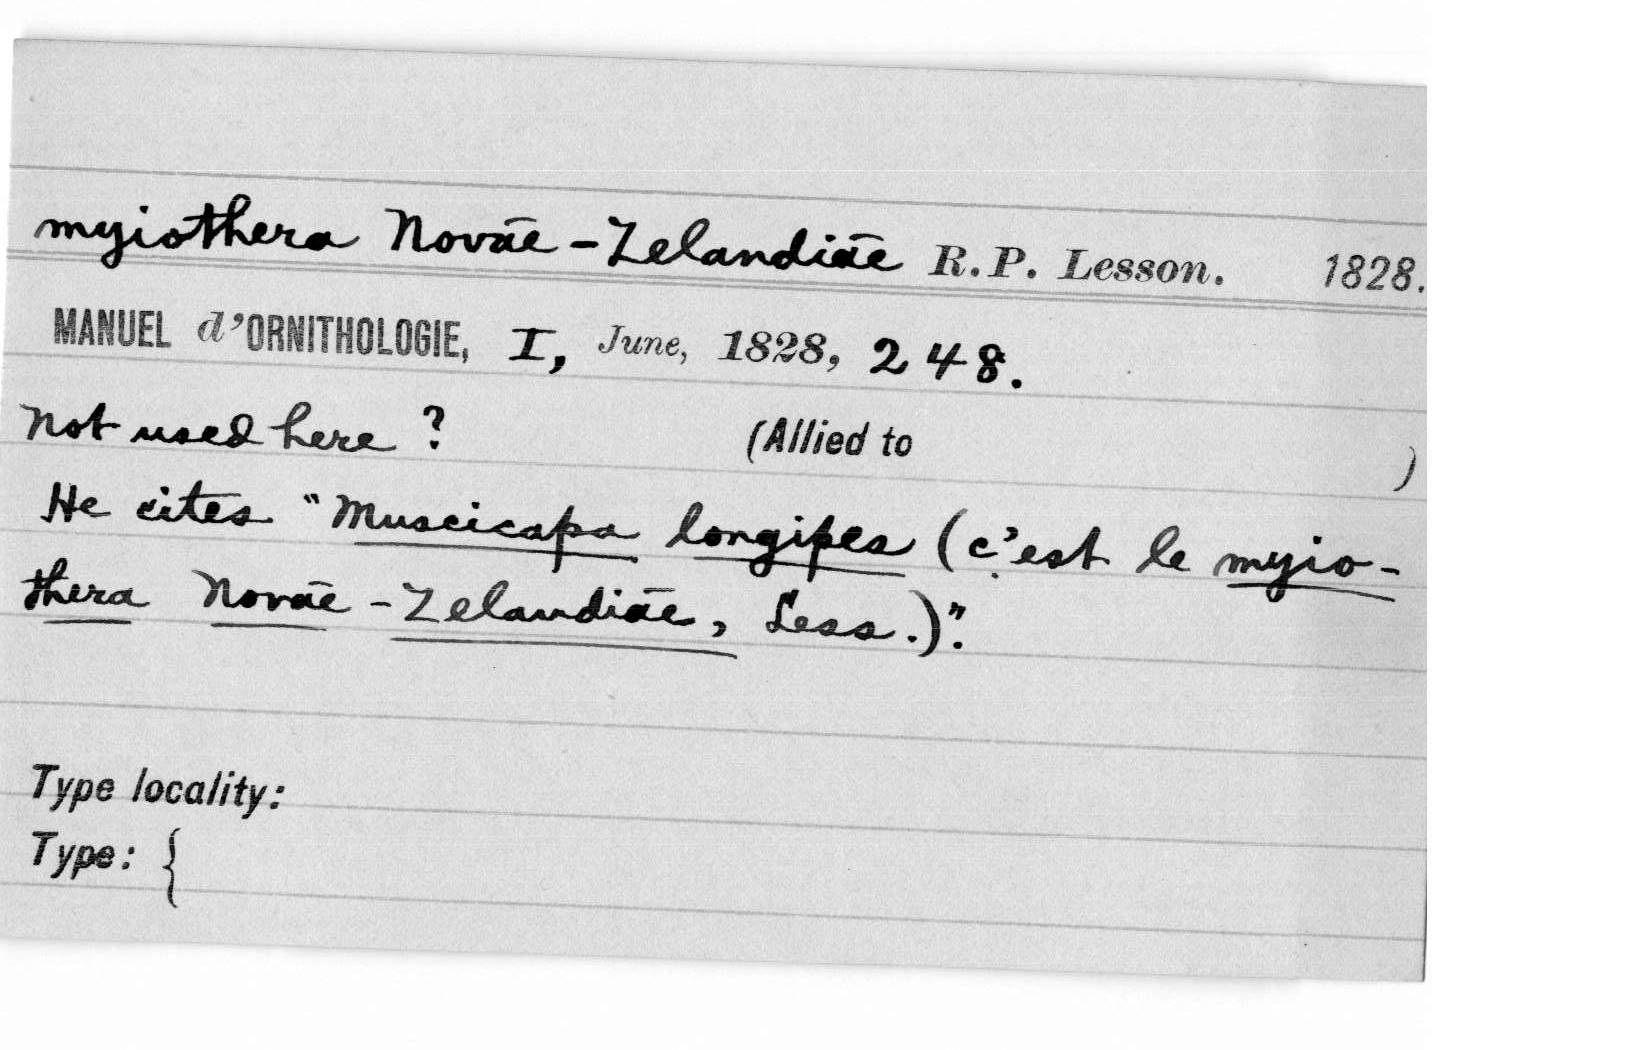 myiothera Novae-Zelandiae R.P. Lesson. 1828.
MANUEL d'ORNITHOLOGIE, I, June, 1828, 248.
Not used here ? (Allied to )
He cites "Muscicapa longipes (c'est le myio-
thera Novae-Zelandiae, Less.)".
Type locality:
Type: {